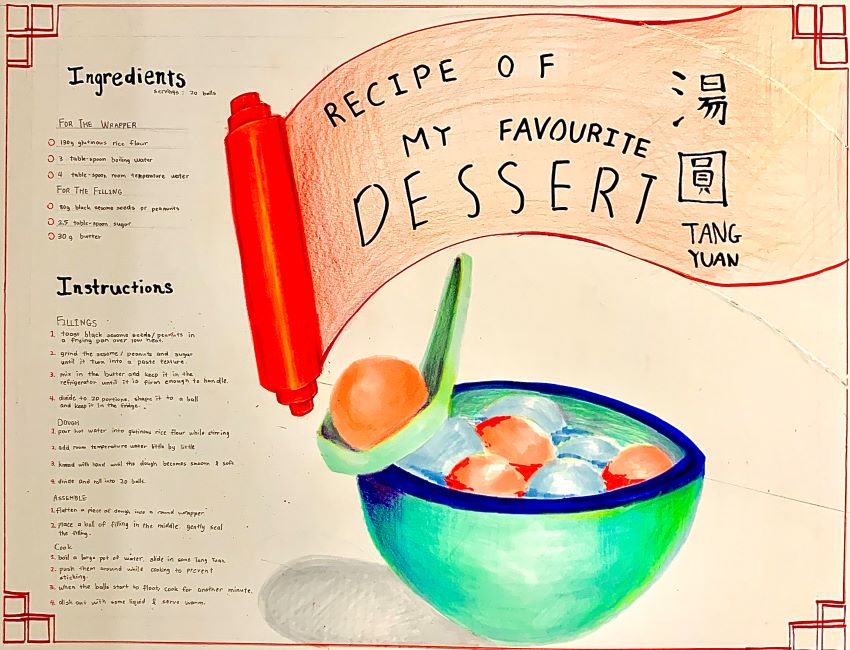 RECIPE OF
MY FAVOURITE
DESSERT
湯
圓
TANG
YUAN
Ingredients
servings: 20 balls
FOR THE WRAPPER
130g glutinous rice flour
3 table-spoon boiling water
4 table-spoon room temperature water
FOR THE FILLING
80g black sesame seeds or peanuts
2.5 table-spoon sugar
30 g butter
Instructions
FILLINGS
1. toast black sesame seeds/peanuts in
a frying pan over low heat.
2. grind the sesame/peanuts and sugar
until it turn into a paste texture.
3. mix in the butter and keep it in the
refrigerator until it is firm enough to handle.
4. divide to 20 portions, shape it to a ball
and keep it in the fridge.
DOUGH
1. pour hot water into glutinous rice flour while stirring
2. add room temperature water little by little
3. knead with hand until the dough becomes smooth & soft
4. divide and roll into 20 balls.
ASSEMBLE
1. flatten a piece of dough into a round wrapper
2. place a ball of filling in the middle, gently seal
the filling.
Cook
1. boil a large pot of water, slide in some Tang Yuan
2. push them around while cooking to prevent
sticking.
3. when the balls start to float, cook for another minute.
4. dish out with some liquid & serve warm.